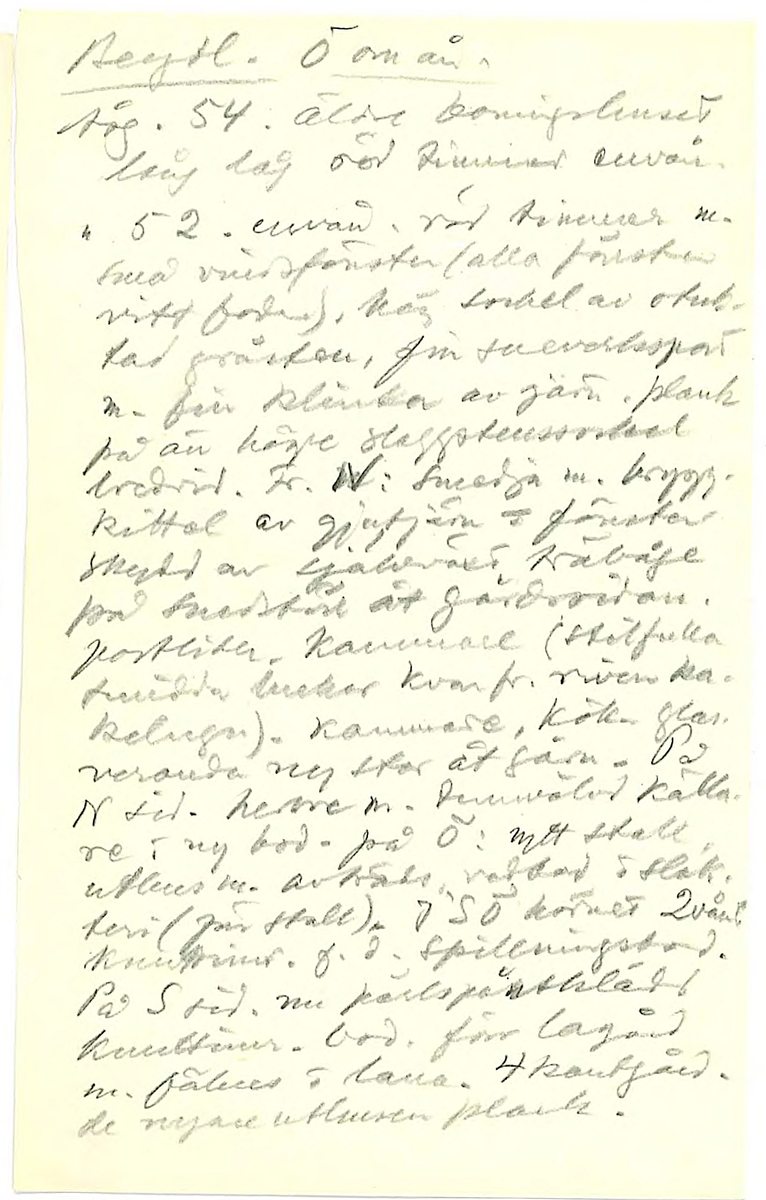 Bergsl. Ö om ån.
tåg. 54. äldre boningshuset
lång låg röd timmer envån.
" 52. envån. röd timmer m.
små vindsfönster (alla fönster
vitt foder). Hög sockel av otuk-
tad gråsten, fin
m. fin klinka av järn. plank
på än högre slaggstenssockel
bredvid. Fr. N: Smedja m. brygg-
kittel av gjutjärn o fönster
skydd av självväxt träbåge
på åt gårdssidan.
portlider. Kammare (stilfulla
smidda luckor kvar fr. riven ka-
kelugn). Kammare, Kök. glas-
veranda ny stor åt gårn. På
N sid. m. tunnvälvd källa-
re i ny bod. på Ö: nytt stall,
uthus m. avträde, vedbod o slak-
teri (förr stall). I SÖ hörnet 2vån.
knuttimr. f. d. spillningsbod.
På S sid. nu
knuttimr. bod. förr lagård
m. fähus o lana. 4kantgård.
de nyare uthusen plank.